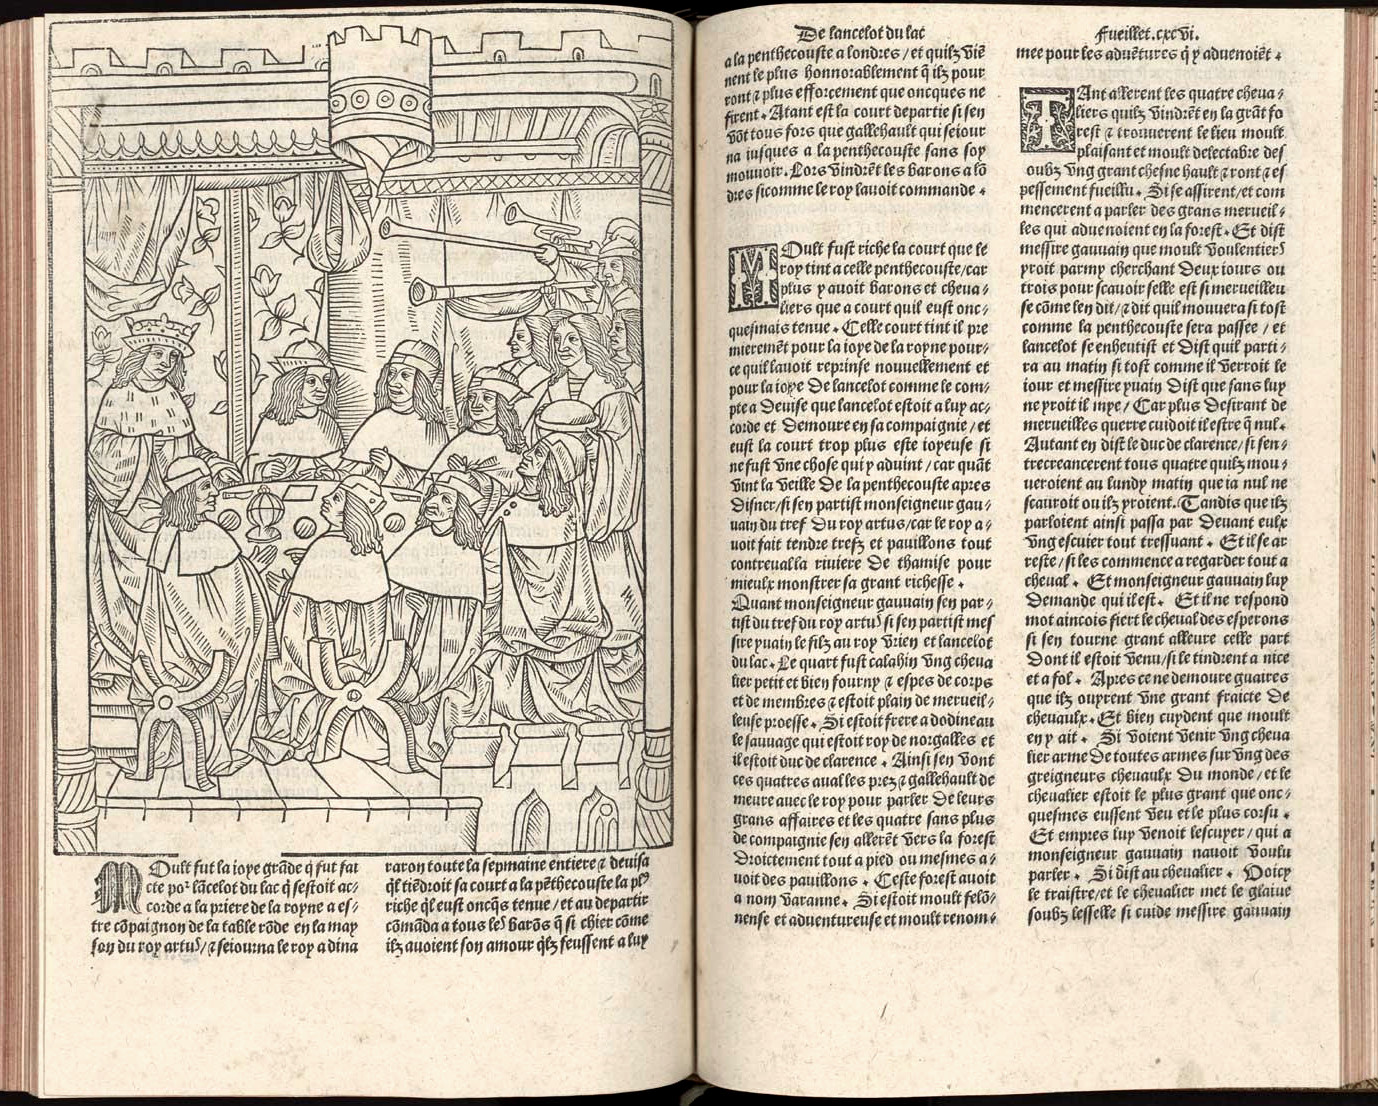 Oult fut la ioye grãde q̃ fut fai
cte po² lãcelot du lac q̃ sestoit ac⸗
corde a la priere de la royne a es⸗
tre cõpaignon de la table rõde en la may
son du roy artu⁾/ ⁊ seiourna le roy a dina
raron toute la sepmaine entiere ⁊ deuisa
q̃l tiẽdroit sa court a la pẽthecouste la pl⁾
riche q̃l eust oncq̃s tenue / et au departir
cõmãda a tous le⁾ barõs q̃ si chier cõme
ilz auoient son amour q̃lz feussent a luy
De lancelot du lac
a la penthecouste a londres / et quilz viẽ
nent le plus honnorablement q̃ ilz pour
ront ⁊ plus efforcement que oncques ne
firent. Atant est la court departie si sen
võt tous fors que gallehault qui seiour
na iusques a la penthecouste sans soy
mouuoir. Lors vindrẽt les barons a lõ
dres sicomme le roy lauoit commande.
MOult fust riche la court que le
roy tint a celle penthecouste/car
plus y auoit barons et cheua⸗
liers que a court quil eust onc⸗
quesmais tenue. Celle court tint il pre
mieremẽt pour la ioye de la royne pour⸗
ce quil lauoit reprinse nouuellement et
pour la ioye de lancelot comme le com⸗
pte a deuise que lancelot estoit a luy ac⸗
corde et demoure en sa compaignie / et
eust la court trop plus este ioyeuse si
ne fust vne chose qui y aduint / car quãt
vint la veille de la penthecouste apres
disner/si sen partist monseigneur gau⸗
uain du tref du roy artus/car le roy a⸗
uoit fait tendre trefz et pauillons tout
contreual la riuiere de thamise pour
mieulx monstrer sa grant richesse.
Quant monseigneur gauuain sen par⸗
tist du tref du roy artu⁾ si sen partist mes
sire yuain le filz au roy vrien et lancelot
du lac. Le quart fust calahin vng cheua
lier petit et bien fourny ⁊ espes de corps
et de membres ⁊ estoit plain de merueil⸗
leuse proesse. Si estoit frere a dodineau
le sauuage qui estoit roy de norgalles et
il estoit duc de clarence. Ainsi sen vont
ces quatres aual les prez ⁊ gallehault de
meure auec le roy pour parler de leurs
grans affaires et les quatre sans plus
de compaignie sen allerẽt vers la forest
droictement tout a pied ou mesmes a⸗
uoit des pauillons. Ceste forest auoit
a nom varanne. Si estoit moult felõ⸗
nense et aduentureuse et moult renom⸗
Fueillet.cxcvi.
mee pour les aduẽtures q̃ y aduenoiẽt.
TAnt allerent les quatre cheua⸗
liers quilz vindrẽt en la grãt fo
rest ⁊ trouuerent le lieu moult
plaisant et moult delectable des
oubz vng grant chesne hault ⁊ ront ⁊ es
pessement fueillu. Si se assirent/et com
mencerent a parler des grans merueil⸗
les qui aduenoient en la forest. Et dist
messire gauuain que moult voulentier⁾
yroit parmy cherchant deux iours ou
trois pour scauoir selle est si merueilleu
se cõme len dit/ ⁊ dit quil mouuera si tost
comme la penthecouste sera passee / et
lancelot se enheutist et dist quil parti⸗
ra au matin si tost comme il verroit le
iour et messire yuain dist que sans luy
ne yroit il mye / Car plus desirant de
merueilles querre cuidoit il estre q̃ nul.
Autant en dist le duc de clarence/si sen⸗
trecreancerent tous quatre quilz mou⸗
ueroient au lundy matin que ia nul ne
scauroit ou ilz yroient. Tandis que ilz
parloient ainsi passa par deuant eulx
vng escuier tout tressuant. Et il se ar
reste / si les commence a regarder tout a
cheual. Et monseigneur gauuain luy
demande qui il est. Et il ne respond
mot aincois fiert le cheual des esperons
si sen tourne grant alleure celle part
dont il estoit venu/si le tindrent a nice
et a fol. Apres ce ne demoure guaires
que ilz ouyrent vne grant fraicte de
cheuaulx. Et bien cuydent que moult
en y ait. Si voient venir vng cheua
lier arme de toutes armes sur vng des
greigneurs cheuaulx du monde / et le
cheualier estoit le plus grant que onc⸗
quesmes eussent veu et le plus corsu.
Et empres luy venoit lescuyer / qui a
monseigneur gauuain nauoit voulu
parler. Si dist au cheualier. Voicy
le traistre/et le cheualier met le glaiue
soubz lesselle si cuide messire gauuain